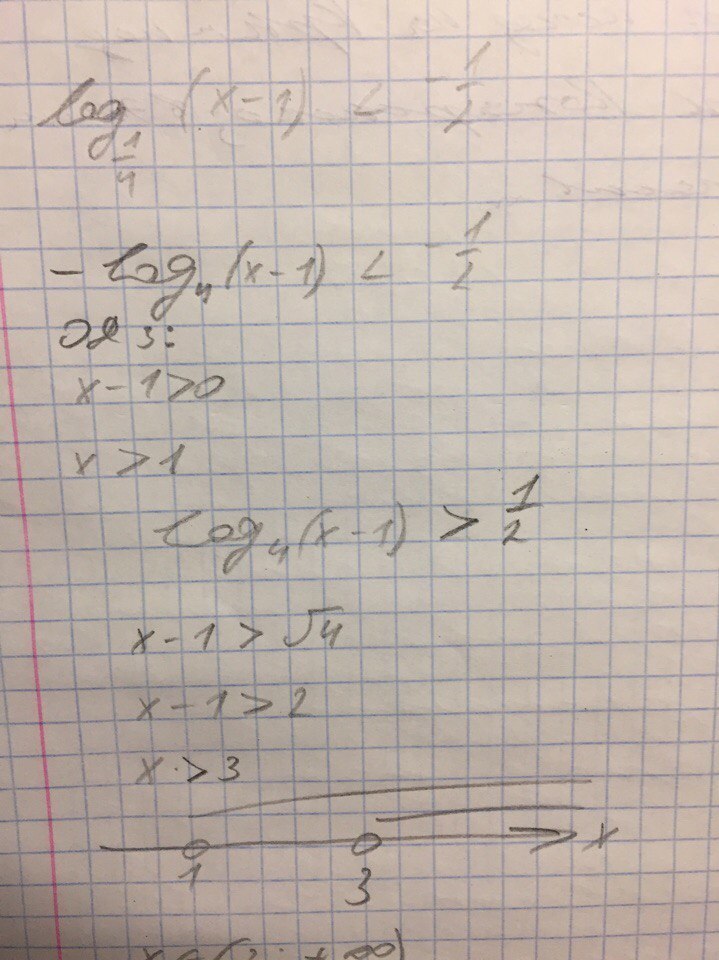 log_{1/4} (x-1) < -1/2
-log₄(x-1) < -1/2
ОДЗ:
x-1>0
x>1
log₄(x-1) > 1/2
x-1 > √4
x-1>2
x>3
x
1 3
x∈(3;+∞)